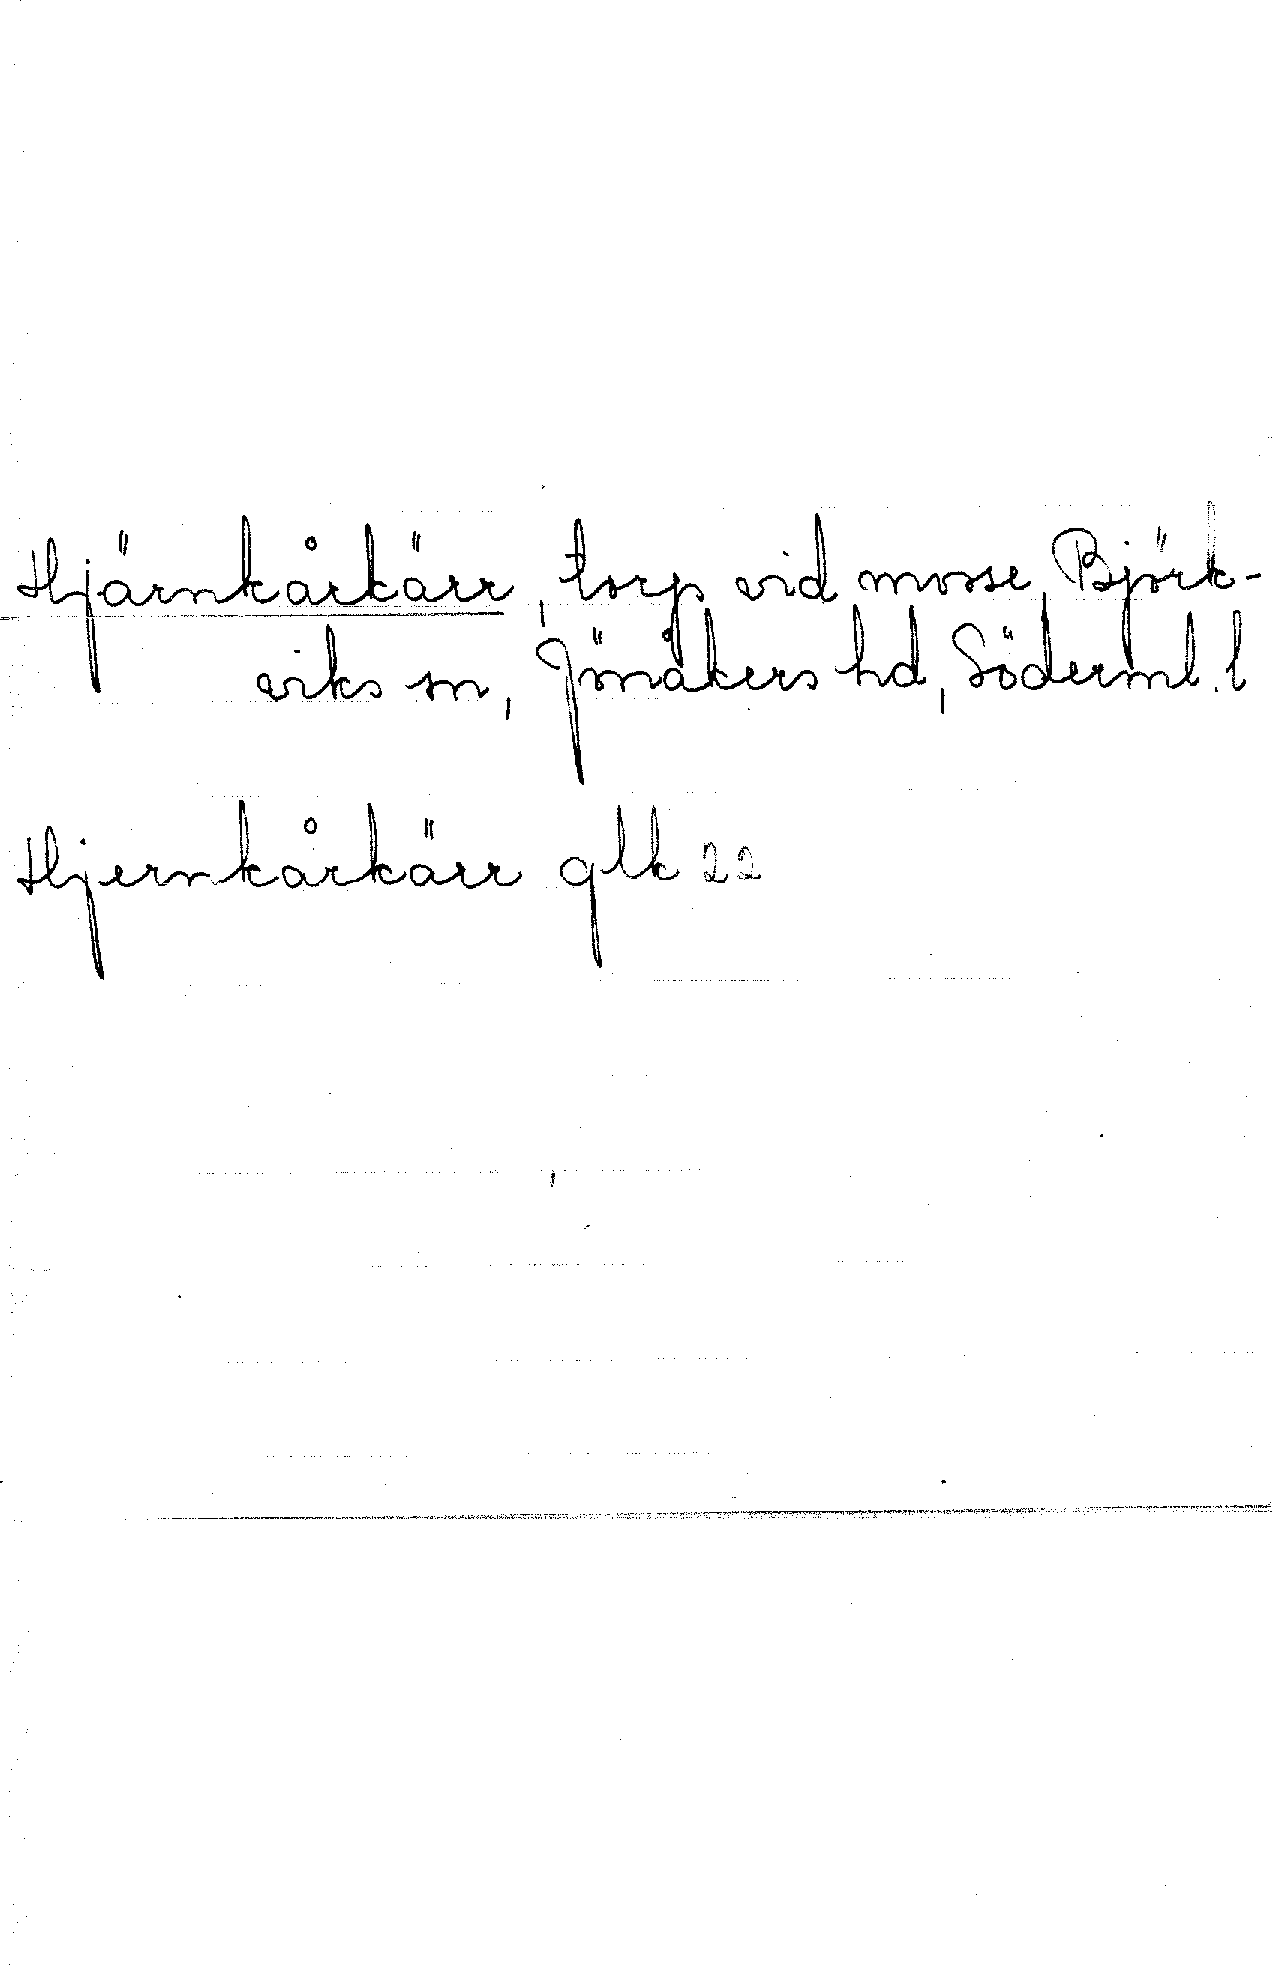 Hjärnkårkärr, torp vid mosse, Björk-
viks sn, Jönåkers hd, Söderml. l
Hjernkårkärr glk 22